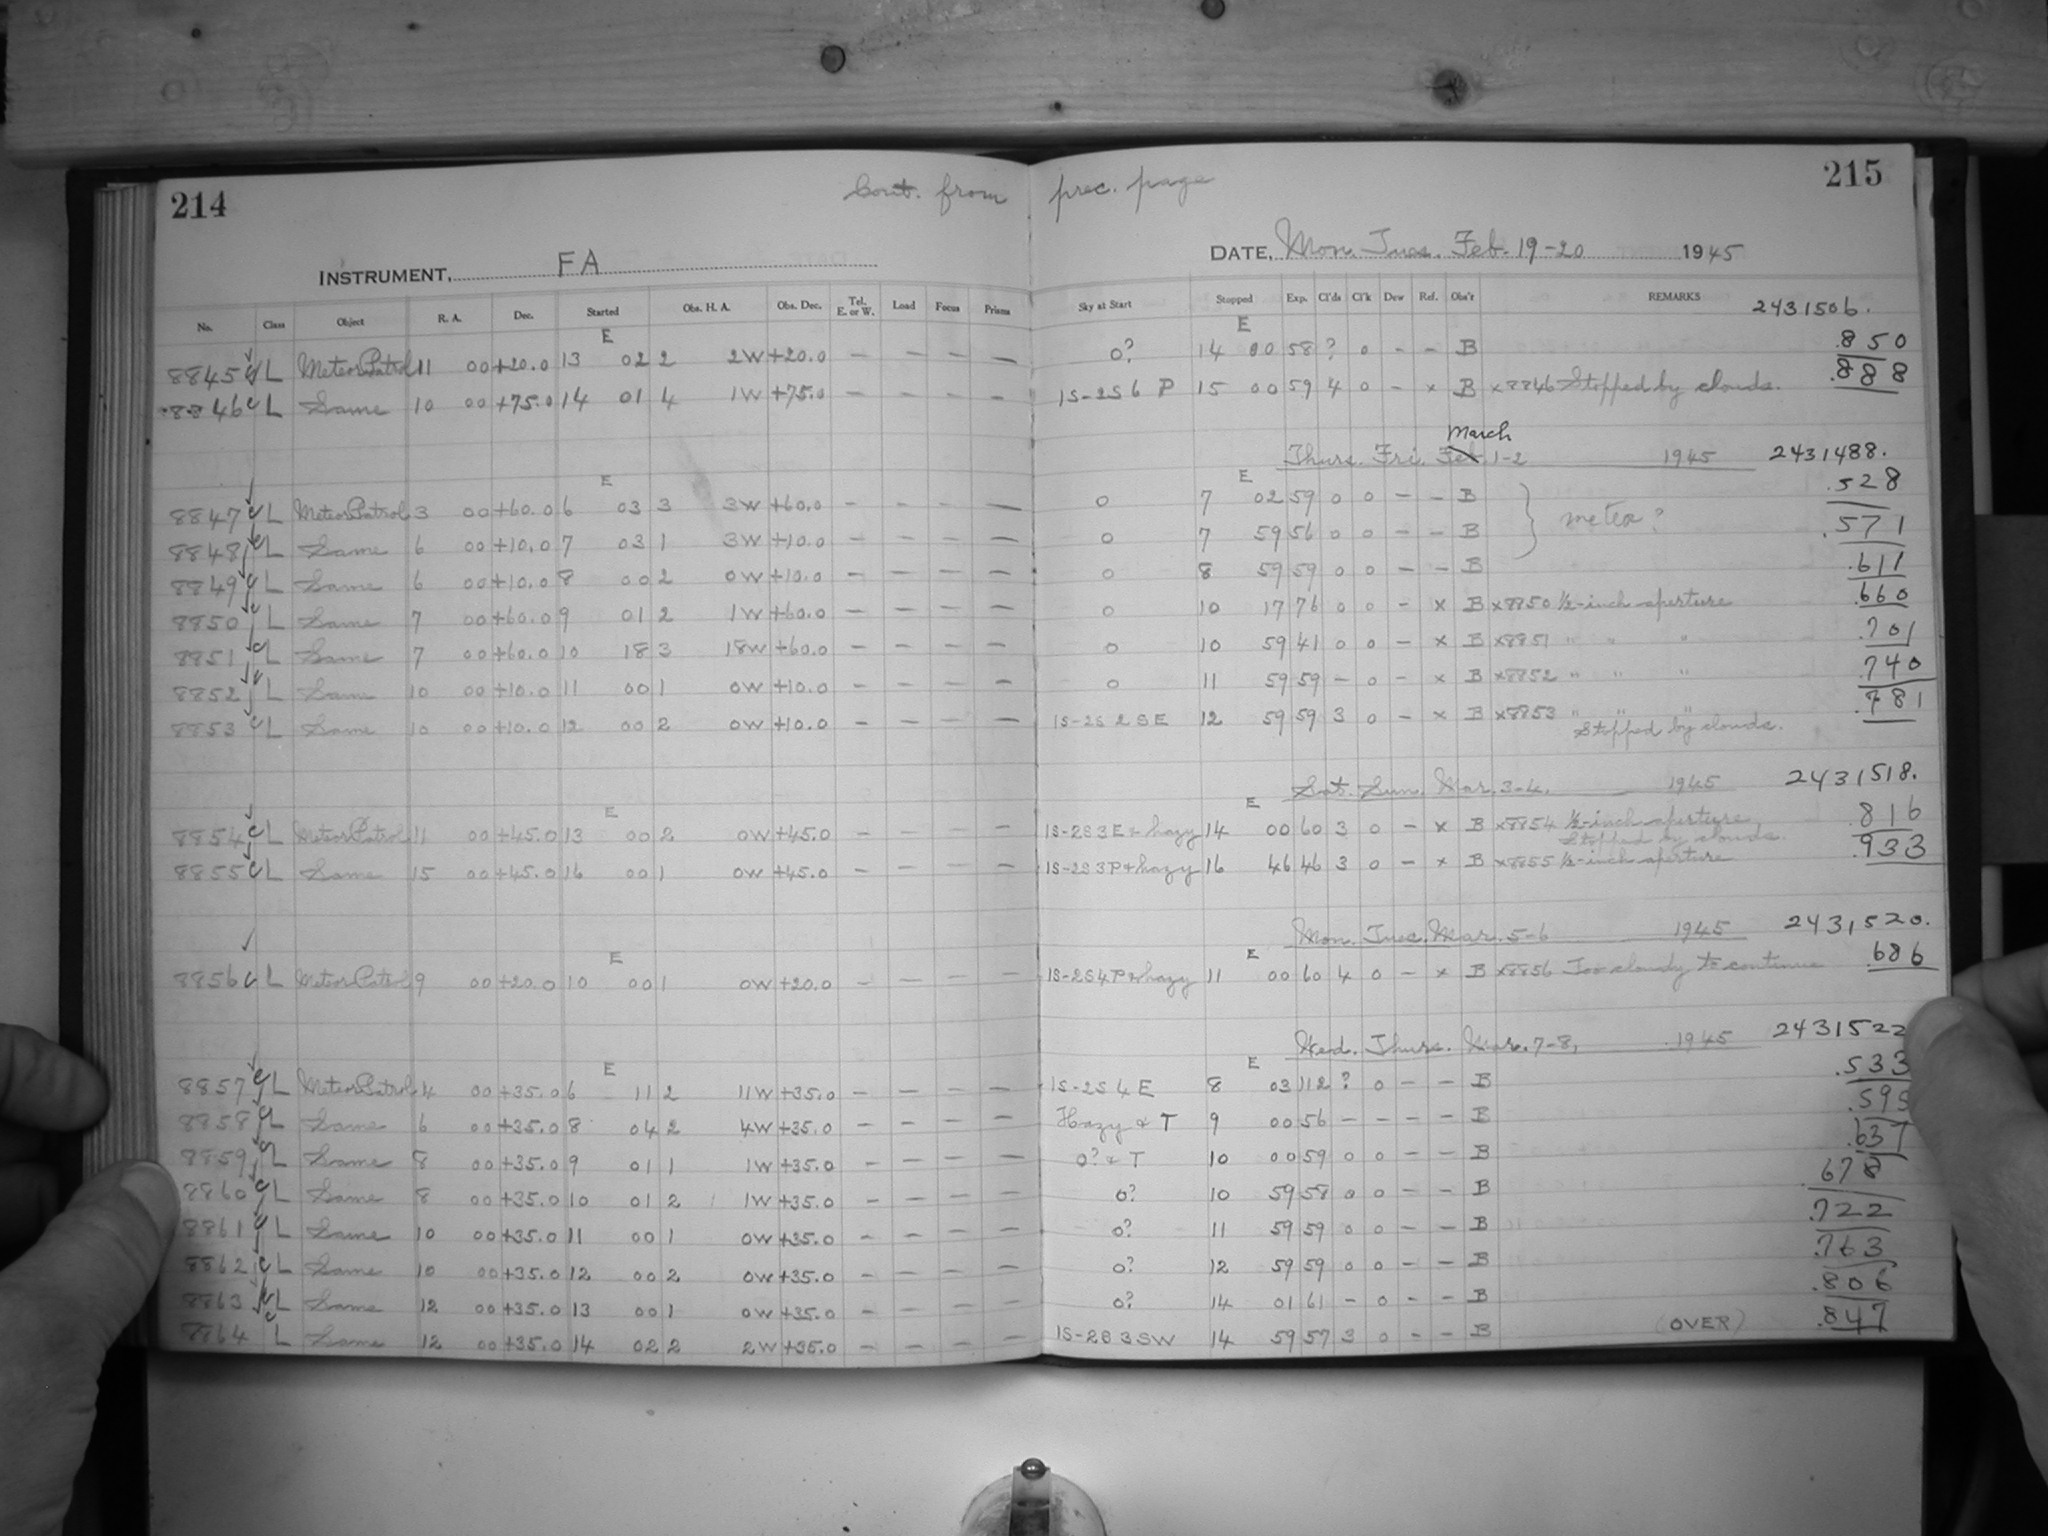 214 Cont. from prec. page 215
INSTRUMENT, FA DATE, Mon. Tues. Feb. 19-20 1945
No. Class Object R. A. Dec. Started Obs. H. A. Obs. Dec. Tel. E. or W. Load Focus Prisms Sky at Start Stopped Exp. Cl'ds Cl'k Dew Ref. Obs'r REMARKS 2431506.
E E
8845 L Meteor Patrol 11 00 +20.0 13 02 2 2W +20.0 — — — — 0? 14 00 58 ? 0 - - B .850
8846 L Same 10 00 +75.0 14 01 4 1W +75.0 — — — — 1S-2S6 P 15 00 59 4 0 - x B x8846 Stopped by clouds. .888
March
Thurs. Fri. Feb 1-2 1945 2431488.
E E
8847 L Meteor Patrol 3 00 +60.0 6 03 3 3W +60.0 - - - — 0 7 02 59 0 0 - - B .528
8848 L Same 6 00 +10.0 7 03 1 3W +10.0 — — — — 0 7 59 56 0 0 - - B meteor? .571
8849 L Same 6 00 +10.0 8 00 2 0W +10.0 — — — — 0 8 59 59 0 0 - - B .611
8850 L Same 7 00 +60.0 9 01 2 1W +60.0 — — — — 0 10 17 76 0 0 - x B x8850 ½-inch aperture .660
8851 L Same 7 00 +60.0 10 18 3 18W +60.0 — — — — 0 10 59 41 0 0 - x B x8851 " " " .701
8852 L Same 10 00 +10.0 11 00 1 0W +10.0 — — — — 0 11 59 59 - 0 - x B x8852 " " " .740
8853 L Same 10 00 +10.0 12 00 2 0W +10.0 — — — — 1S-2S 2 SE 12 59 59 3 0 - x B x8853 " " " .781
Stopped by clouds.
Sat. Sun. Mar. 3-4, 1945 2431518.
E E
8854 L Meteor Patrol 11 00 +45.0 13 00 2 0W +45.0 — — — — 1S-2S3E + hazy 14 00 60 3 0 - x B x8854 ½-inch aperture .816
Stopped by clouds.
8855 L Same 15 00 +45.0 16 00 1 0W +45.0 — — — — 1S-2S3P + hazy 16 46 46 3 0 - x B x8855 ½-inch aperture .933
Mon. Tues. Mar. 5-6 1945 2431520.
E E
8856 L Meteor Patrol 9 00 +20.0 10 00 1 0W +20.0 — — — — 1S-2S4P + hazy 11 00 60 4 0 - x B x8856 Too cloudy to continue .686
Wed. Thurs. Mar. 7-8, 1945 2431522
E E
8857 L Meteor Patrol 4 00 +35.0 6 11 2 11W +35.0 — — — — 1S-2S 4 E 8 03 112 ? 0 - - B .533
8858 L Same 6 00 +35.0 8 04 2 4W +35.0 — — — — Hazy & T 9 00 56 - - - - B .595
8859 L Same 8 00 +35.0 9 01 1 1W +35.0 — — — — 0? & T 10 00 59 0 0 - - B .637
8860 L Same 8 00 +35.0 10 01 2 1W +35.0 — — — — 0? 10 59 58 0 0 - - B .678
8861 L Same 10 00 +35.0 11 00 1 0W +35.0 — — — — 0? 11 59 59 0 0 - - B .722
8862 L Same 10 00 +35.0 12 00 2 0W +35.0 — — — — 0? 12 59 59 0 0 - - B .763
8863 L Same 12 00 +35.0 13 00 1 0W +35.0 — — — — 0? 14 01 61 - 0 - - B .806
8864 L Same 12 00 +35.0 14 02 2 2W +35.0 — — — — 1S-2S 3 SW 14 59 57 3 0 - - B (OVER) .847